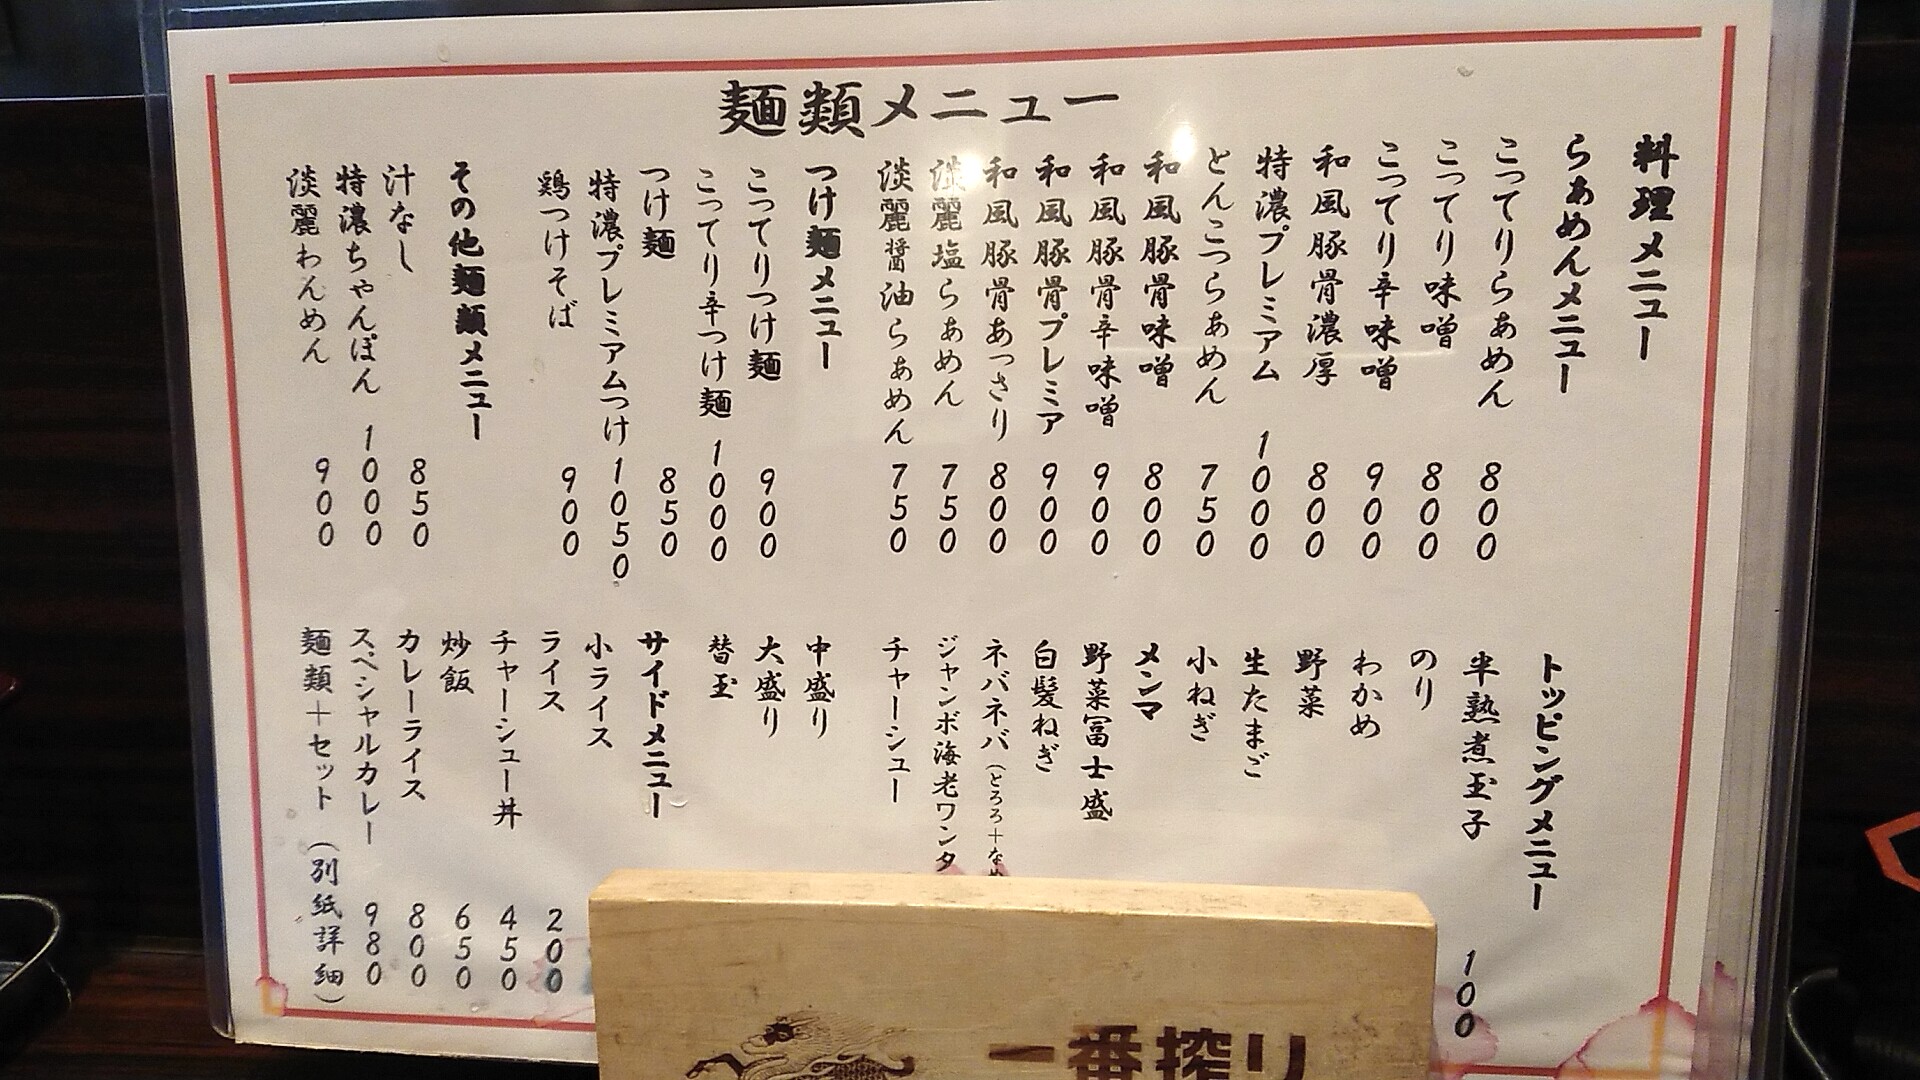 麺類メニュー
料理メニュー
らぁめんメニュー
こってりらぁめん 800
こってり味噌 800
こってり辛味噌 900
和風豚骨濃厚 800
特濃プレミアム 1000
とんこつらぁめん 750
和風豚骨味噌 800
和風豚骨辛味噌 900
和風豚骨プレミア 900
和風豚骨あっさり 800
淡麗塩らぁめん 750
淡麗醤油らぁめん 750
つけ麺メニュー
こってりつけ麺 900
こってり辛つけ麺 1000
つけ麺 850
特濃プレミアムつけ 1050
鶏つけそば 900
その他麺類メニュー
汁なし 850
特濃ちゃんぽん 1000
淡麗わんめん 900
トッピングメニュー
半熟煮玉子 100
のり
わかめ
野菜
生たまご
小ねぎ
メンマ
野菜冨士盛
白髪ねぎ
ネバネバ(とろろ+なめ
ジャンボ海老ワンタ
チャーシュー
中盛り
大盛り
替玉
サイドメニュー
小ライス
ライス 200
チャーシュー丼 450
炒飯 650
カレーライス 800
スペシャルカレー 980
麺類+セット(別紙詳細)
一番搾り